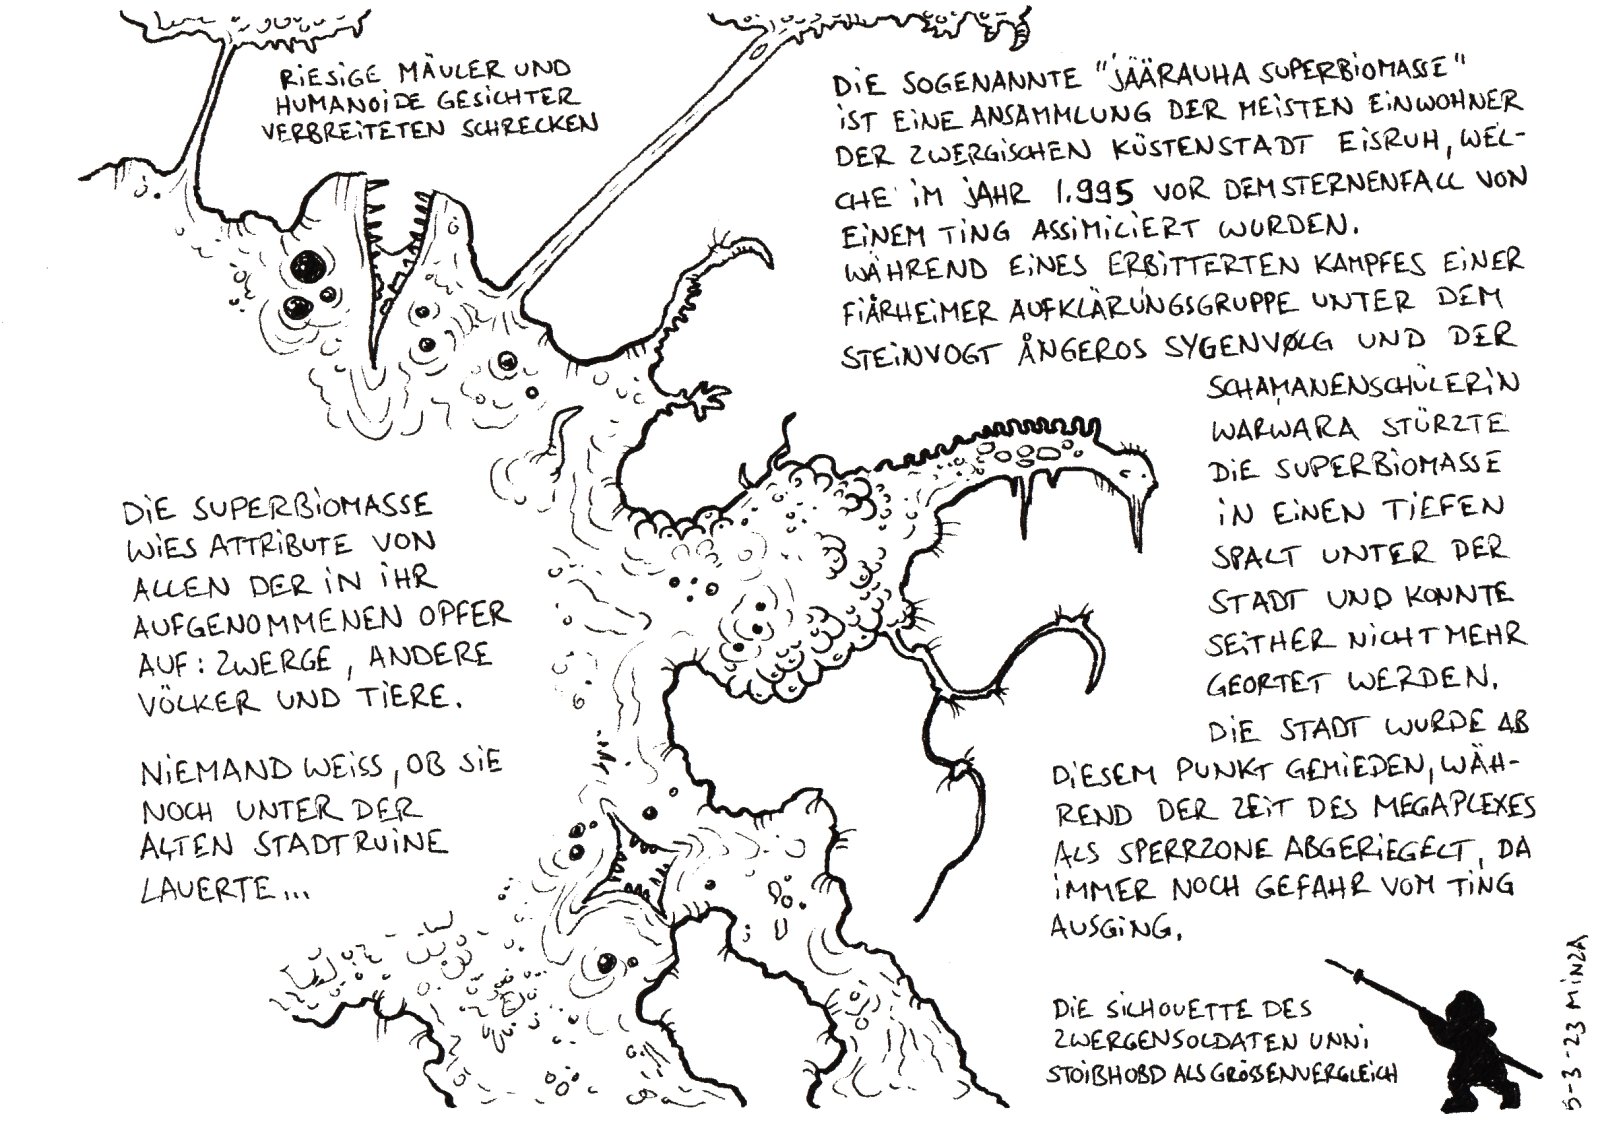 RIESIGE MÄULER UND
HUMANOIDE GESICHTER
VERBREITETEN SCHRECKEN
DIE SOGENANNTE "JÄÄRAUHA SUPERBIOMASSE"
IST EINE ANSAMMLUNG DER MEISTEN EINWOHNER
DER ZWERGISCHEN KÜSTENSTADT EISRUH, WEL-
CHE IM JAHR 1.995 VOR DEM STERNENFALL VON
EINEM TING ASSIMILIERT WURDEN.
WÄHREND EINES ERBITTERTEN KAMPFES EINER
FIÅRHEIMER AUFKLÄRUNGSGRUPPE UNTER DEM
STEINVOGT ÅNGEROS SYGENVØLG UND DER
SCHAMANENSCHÜLERIN
WARWARA STÜRZTE
DIE SUPERBIOMASSE
IN EINEN TIEFEN
SPALT UNTER DER
STADT UND KONNTE
SEITHER NICHT MEHR
GEORTET WERDEN.
DIE STADT WURDE AB
DIESEM PUNKT GEMIEDEN, WÄH-
REND DER ZEIT DES MEGAPLEXES
ALS SPERRZONE ABGERIEGELT, DA
IMMER NOCH GEFAHR VOM TING
AUSGING.
DIE SUPERBIOMASSE
WIES ATTRIBUTE VON
ALLEN DER IN IHR
AUFGENOMMENEN OPFER
AUF: ZWERGE, ANDERE
VÖLKER UND TIERE.
NIEMAND WEISS, OB SIE
NOCH UNTER DER
ALTEN STADTRUINE
LAUERTE...
DIE SILHOUETTE DES
ZWERGENSOLDATEN UNNI
STOIßHOBD ALS GRÖSSENVERGLEICH
5-3-23 MINZA